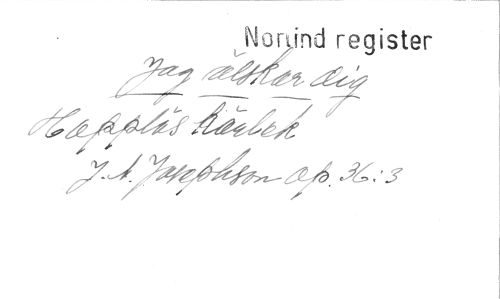 Norlind register
Jag älskar dig
Hopplös kärlek
J. A. Josephson op. 36:3